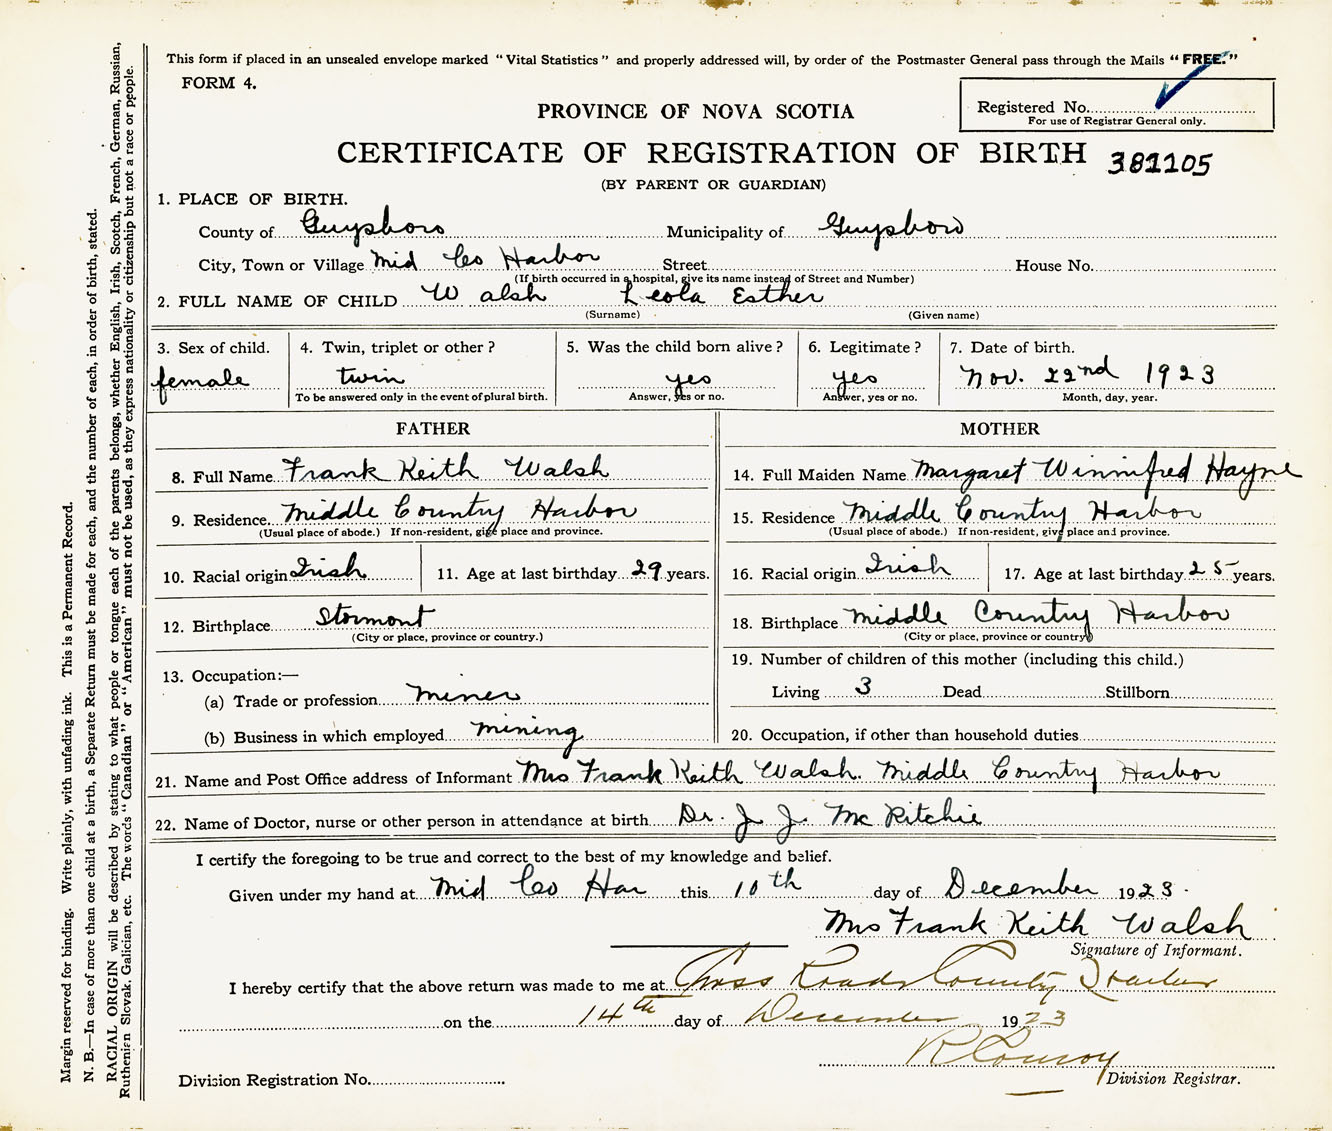 This form if placed in an unsealed envelope marked "Vital Statistics" and properly addressed will, by order of the Postmaster General pass through the Mails "FREE."
FORM 4.
Registered No.
For use of Registrar General only.
PROVINCE OF NOVA SCOTIA
CERTIFICATE OF REGISTRATION OF BIRTH 381105
(BY PARENT OR GUARDIAN)
1. PLACE OF BIRTH.
County of Guysboro Municipality of Guysboro
City, Town or Village Mid Co Harbor Street House No.
(If birth occurred in a hospital, give its name instead of Street and Number)
2. FULL NAME OF CHILD Walsh Leola Esther
(Surname) (Given name)
3. Sex of child. 4. Twin, triplet or other? 5. Was the child born alive? 6. Legitimate? 7. Date of birth.
female twin yes yes Nov. 22nd 1923
To be answered only in the event of plural birth. Answer, yes or no. Answer, yes or no. Month, day, year.
FATHER
8. Full Name Frank Keith Walsh
9. Residence Middle Country Harbor
(Usual place of abode.) If non-resident, give place and province.
10. Racial origin Irish 11. Age at last birthday 29 years.
12. Birthplace Stormont
(City or place, province or country.)
13. Occupation:—
(a) Trade or profession miner
(b) Business in which employed mining
MOTHER
14. Full Maiden Name Margaret Winnifred Hayne
15. Residence Middle Country Harbor
(Usual place of abode.) If non-resident, give place and province.
16. Racial origin Irish 17. Age at last birthday 25 years.
18. Birthplace Middle Country Harbor
(City or place, province or country)
19. Number of children of this mother (including this child.)
Living 3 Dead Stillborn
20. Occupation, if other than household duties
21. Name and Post Office address of Informant Mrs Frank Keith Walsh. Middle Country Harbor
22. Name of Doctor, nurse or other person in attendance at birth Dr. J. J. McRitchie
I certify the foregoing to be true and correct to the best of my knowledge and belief.
Given under my hand at Mid Co Har this 10th day of December 1923.
Mrs Frank Keith Walsh
Signature of Informant.
I hereby certify that the above return was made to me at Cross Roads Country Harbor
on the 14th day of December 1923
R Conroy
Division Registration No. Division Registrar.
Margin reserved for binding. Write plainly, with unfading ink. This is a Permanent Record.
N. B.—In case of more than one child at a birth, a Separate Return must be made for each, and the number of each, in order of birth, stated.
RACIAL ORIGIN will be described by stating to what people or tongue each of the parents belongs, whether English, Irish, Scotch, French, German, Russian,
Ruthenian Slovak, Galician, etc. The words "Canadian" or "American" must not be used, as they express nationality or citizenship but not a race or people.